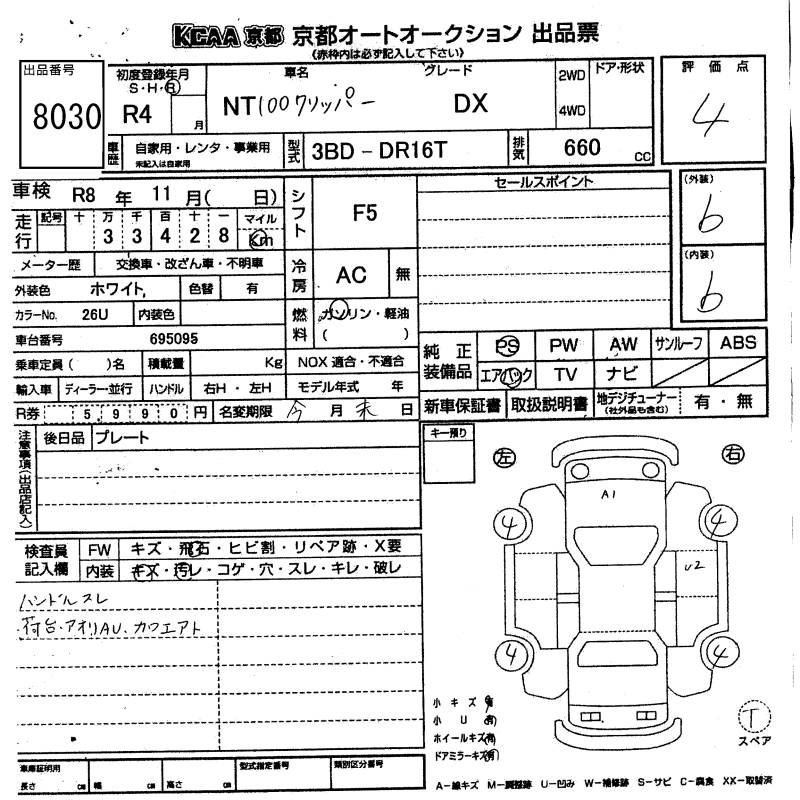 KCAA 京都 京都オートオークション 出品票
(赤枠内は必ず記入して下さい)
出品番号 8030
初度登録年月 S・H・R R4 月
車名 NT100クリッパー
グレード DX
2WD 4WD
ドア・形状
評価点 4
車歴 自家用・レンタ・事業用
未記入は自家用
型式 3BD-DR16T
排気 660 cc
車検 R8 年 11 月( 日)
シフト F5
セールスポイント
(外装) b
走行 記号 十 万 千 百 十 一 マイル
3 3 4 2 8 Km
メーター歴 交換車・改ざん車・不明車
冷房 AC 無
(内装) b
外装色 ホワイト, 色替 有
カラーNo. 26U 内装色
燃料 ガソリン・軽油
( )
車台番号 695095
乗車定員( )名 積載量 Kg NOX 適合・不適合
輸入車 ディーラー・並行 ハンドル 右H・左H モデル年式 年
純正装備品 PS PW AW サンルーフ ABS
エアバック TV ナビ
R券 5 9 9 0 円 名変期限 今 月 末 日
新車保証書 取扱説明書 地デジチューナー (社外品も含む) 有・無
注意事項(出品店記入)
後日品 プレート
キー預り
左 右
A1
4 4
U2
4 4
検査員記入欄
FW キズ・飛石・ヒビ割・リペア跡・X要
内装 キズ・汚レ・コゲ・穴・スレ・キレ・破レ
ハンドルスレ
荷台・アオリAU、カウエアト
小キズ 有
小 U 有
ホイールキズ 有
ドアミラーキズ 有
T
スペア
車庫証明用
長さ cm 幅 cm 高さ cm
型式指定番号
類別区分番号
A-線キズ M-調整跡 U-凹み W-補修跡 S-サビ C-腐食 XX-取替済